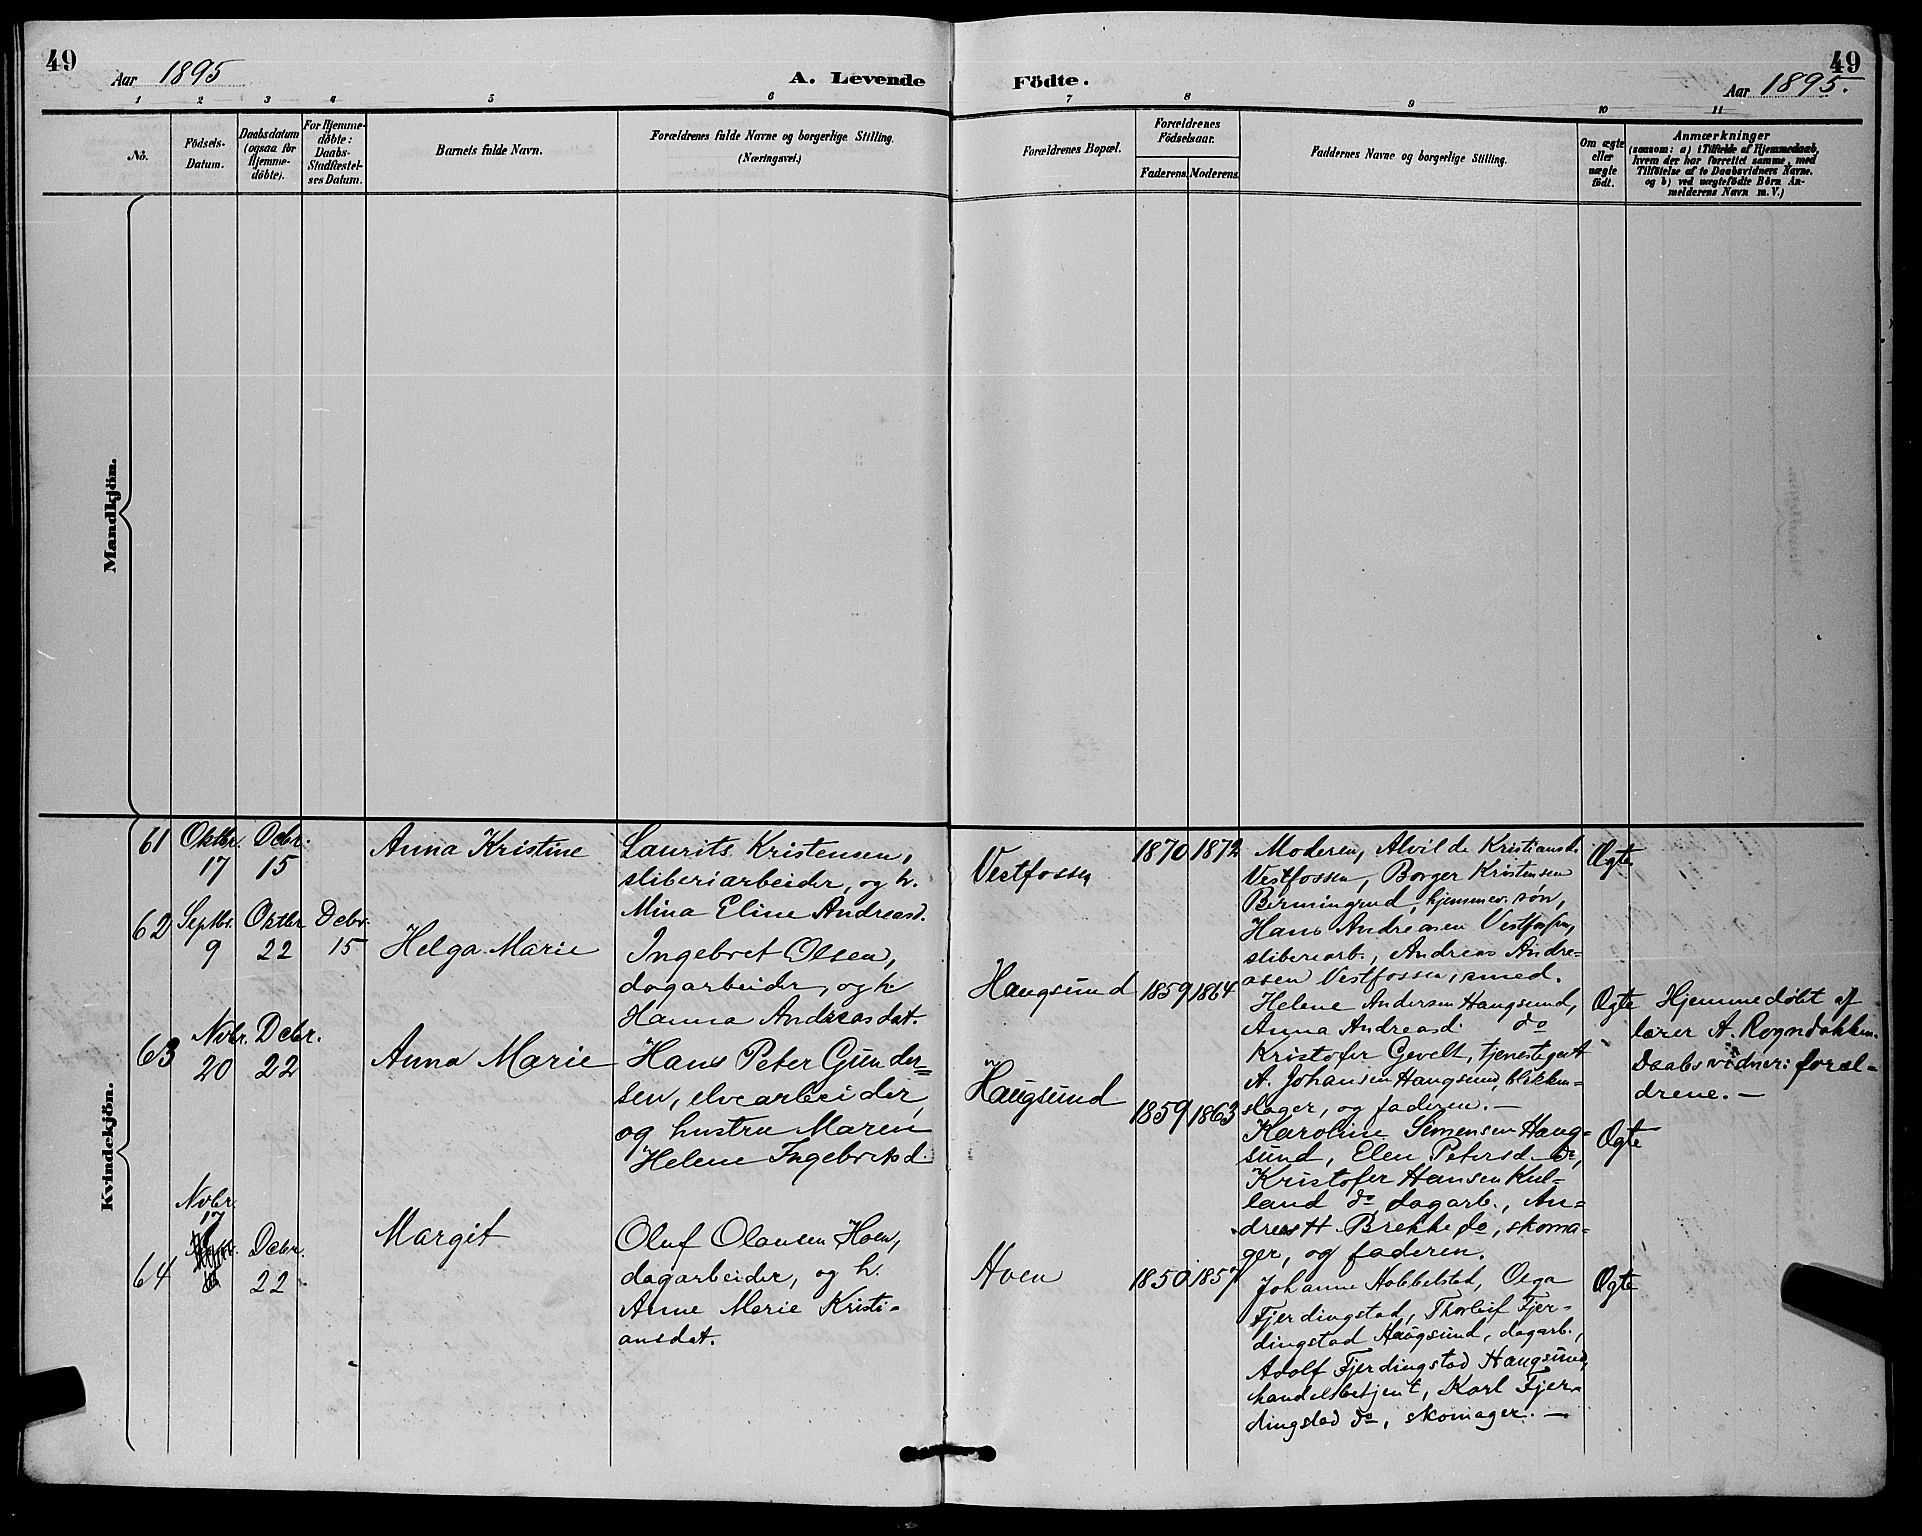 49
Aar 1895
A. Levende Födte.
49
Aar 1895.
1 2 3 4 5 6 7 8 9 10 11
No.
Födsels-
Datum.
Daabsdatum
(ogsaa for
Hjemme-
döbte).
For Hjemme-
döbte:
Daabs-
Stadfæstel-
ses Datum.
Barnets fulde Navn.
Forældrenes fulde Navne og borgerlige Stilling.
(Næringsvei.)
Forældrenes Bopæl.
Forældrenes
Födselsaar.
Faderens. Moderens.
Faddernes Navne og borgerlige Stilling.
Om ægte
eller
uægte
födt.
Anmærkninger
(saasom: a) i Tilfælde af Hjemmedaab,
hvem der har forrettet samme, med
Tilföielse af to Daabsvidners Navne.
og b) ved uægtefödte Börn An-
melderens Navn m. V.)
Mandkjön.
Kvindekjön.
61
Oktbr.
17
Debr.
15
Anna Kristine
Laurits Kristensen,
sliberiarbeider, og h.
Mina Eline Andreasd.
Vestfossen
1870 1872
Moderen, Alvilde Kristiansd.
Vestfossen, Borger Kristensen
Bermingrud, hjemmev. søn,
Hans Andreasen Vestfossen,
sliberiarb., Andreas Andre-
asen Vestfossen, smed.
Ægte
62
Septbr.
9
Oktbr
22
Debr.
15
Helga Marie
Ingebret Olsen,
dagarbeider, og h.
Hanna Andreasdat.
Haugsund
1859 1864
Helene Andersen Haugsund,
Anna Andreasd. do
Kristofer Gevelt, tjenestegut
A. Johansen Haugsund, blikken-
slager, og faderen. —
Ægte
Hjemmedøbt af
lærer A. Rogndokken.
Daabsvidner: foræl-
drene. —
63
Nvbr.
20
Debr.
22
Anna Marie
Hans Peter Gunder-
sen, elvearbeider,
og hustru Maren
Helene Ingebretsd.
Haugsund
1859 1863
Karoline Simensen Haug-
sund, Elen Petersd do,
Kristofer Hansen Kul-
land do, dagarb., An-
dreas H. Brekke do, skoma-
ger, og faderen.
Ægte
64
Nvbr.
17
Debr.
22
Margit
Oluf Olausen Hoen,
dagarbeider, og h.
Anne Marie Kristi-
ansdat.
Hoen
1850 1857
Johanne Hobbelstad, Olga
Fjerdingstad, Thorleif Fjer-
dingstad Haugsund, dagarb.,
Adolf Fjerdingstad Haugsund,
handelsbetjent, Karl Fjer-
dingstad do, skomager. —
Ægte